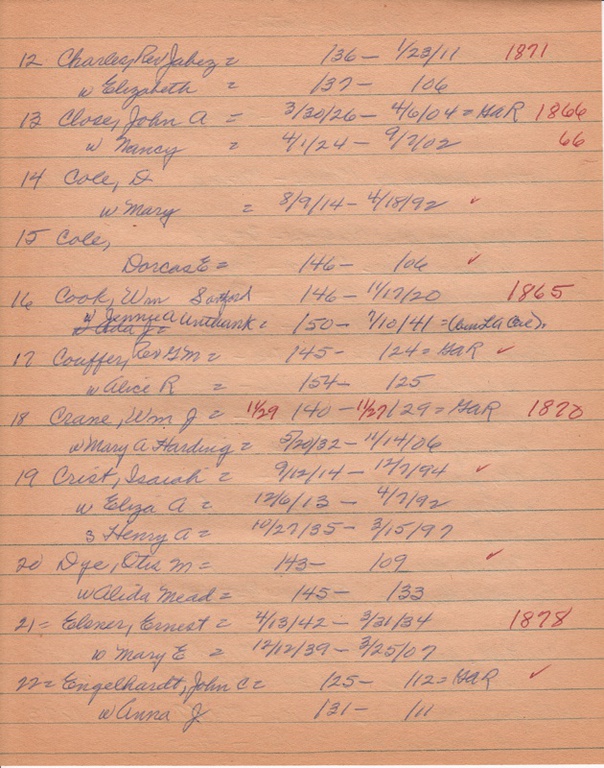 12 Charles, Rev Jabez = 136 - 1/23/11 1871
w Elizabeth = 137 - 106
13 Close, John A = 3/30/26 - 4/6/04 = GAR 1866
w Nancy = 4/1/24 - 9/7/02 66
14 Cole, D
w Mary = 8/9/14 - 4/18/92 ✓
15 Cole,
Dorcas E = 146 - 106 ✓
16 Cook, Wm Sanford 146 - 11/17/20 1865
w Jennie A = 150 - 7/10/41 =
17 Couffer, Rev G M = 145 - 124 = GAR ✓
w Alice R = 154 - 125
18 Crane, Wm J = 11/29 140 - 11/27/29 = GAR 1870
w Mary A Harding = 5/20/32 - 11/14/06
19 Crist, Isaiah = 9/12/14 - 12/7/94 ✓
w Eliza A = 12/6/13 - 4/7/92
s Henry A = 10/27/35 - 3/15/97
20 Dye, Otis M = 143 - 109 ✓
w Alida Mead = 145 - 133
21 = Elsner, Ernest = 4/13/42 - 3/31/34 1878
w Mary E = 12/12/39 - 3/25/07
22 = Engelhardt, John C = 125 - 112 = GAR ✓
w Anna J 131 - 111